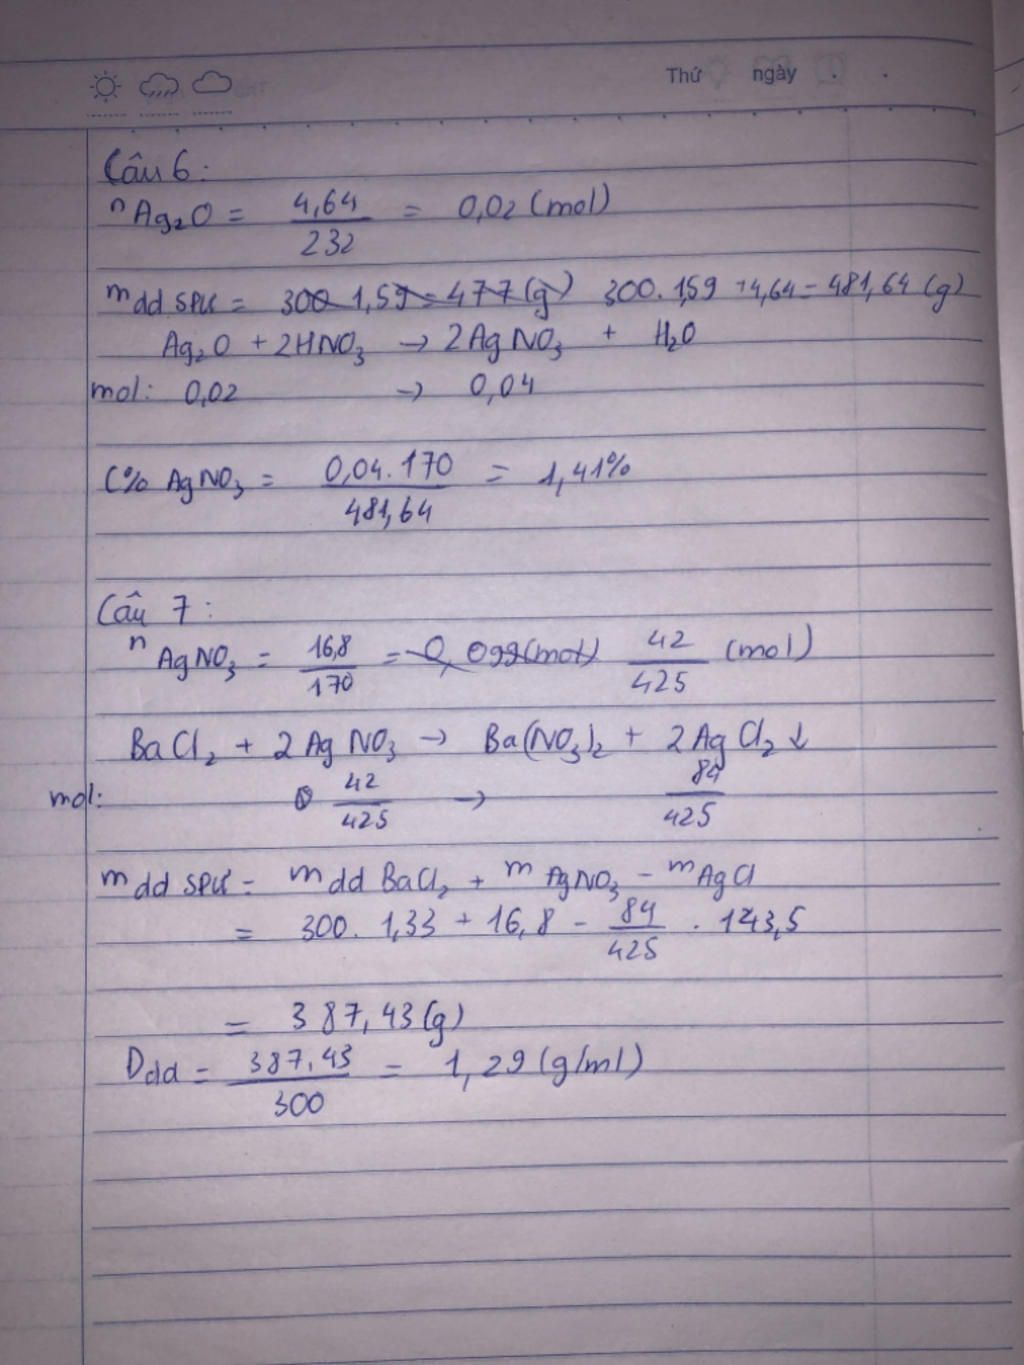 Thứ ngày
Câu 6:
nAg₂O = 4,64/232 = 0,02 (mol)
mdd spư = 300 1,59 = 477 (g) 300. 1,59 + 4,64 = 481,64 (g)
Ag₂O + 2HNO₃ → 2AgNO₃ + H₂O
mol: 0,02 → 0,04
C% AgNO₃ = 0,04.170/481,64 = 1,41%
Câu 7:
nAgNO₃ = 16,8/170 = 0,099(mol) 42/425 (mol)
BaCl₂ + 2AgNO₃ → Ba(NO₃)₂ + 2AgCl₂↓
mol: 42/425 → 84/425
mdd spư = mdd BaCl₂ + mAgNO₃ - mAgCl
= 300. 1,33 + 16,8 - 84/425 . 143,5
= 387,43(g)
Ddd = 387,43/300 = 1,29 (g/ml)